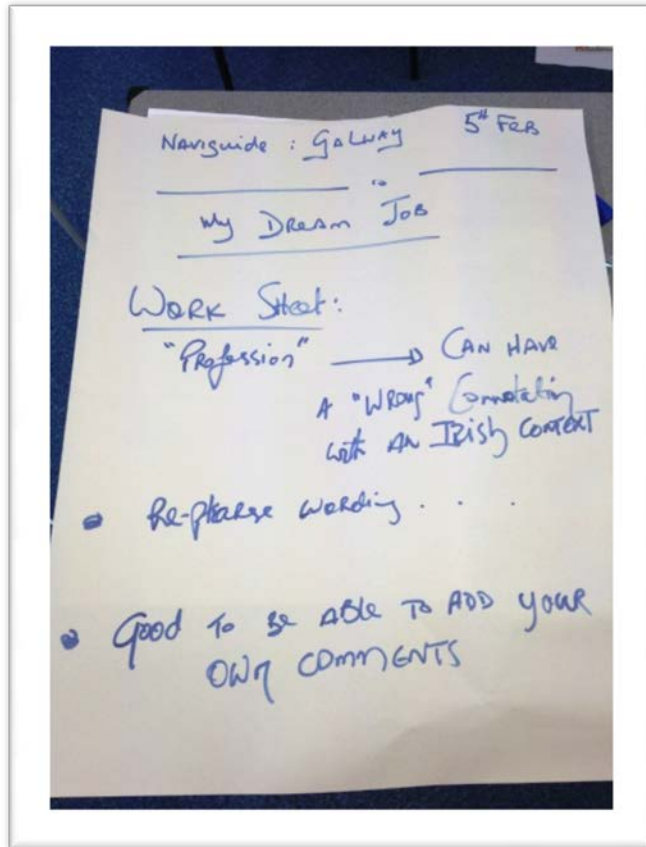 Naviguide : Galway 5th Feb
My Dream Job
Work Sheet:
"Profession" → Can Have
A "Wrong" Connotation
with AN Irish Context
• Re-pharse wording . . .
• Good to be able to add your
own comments